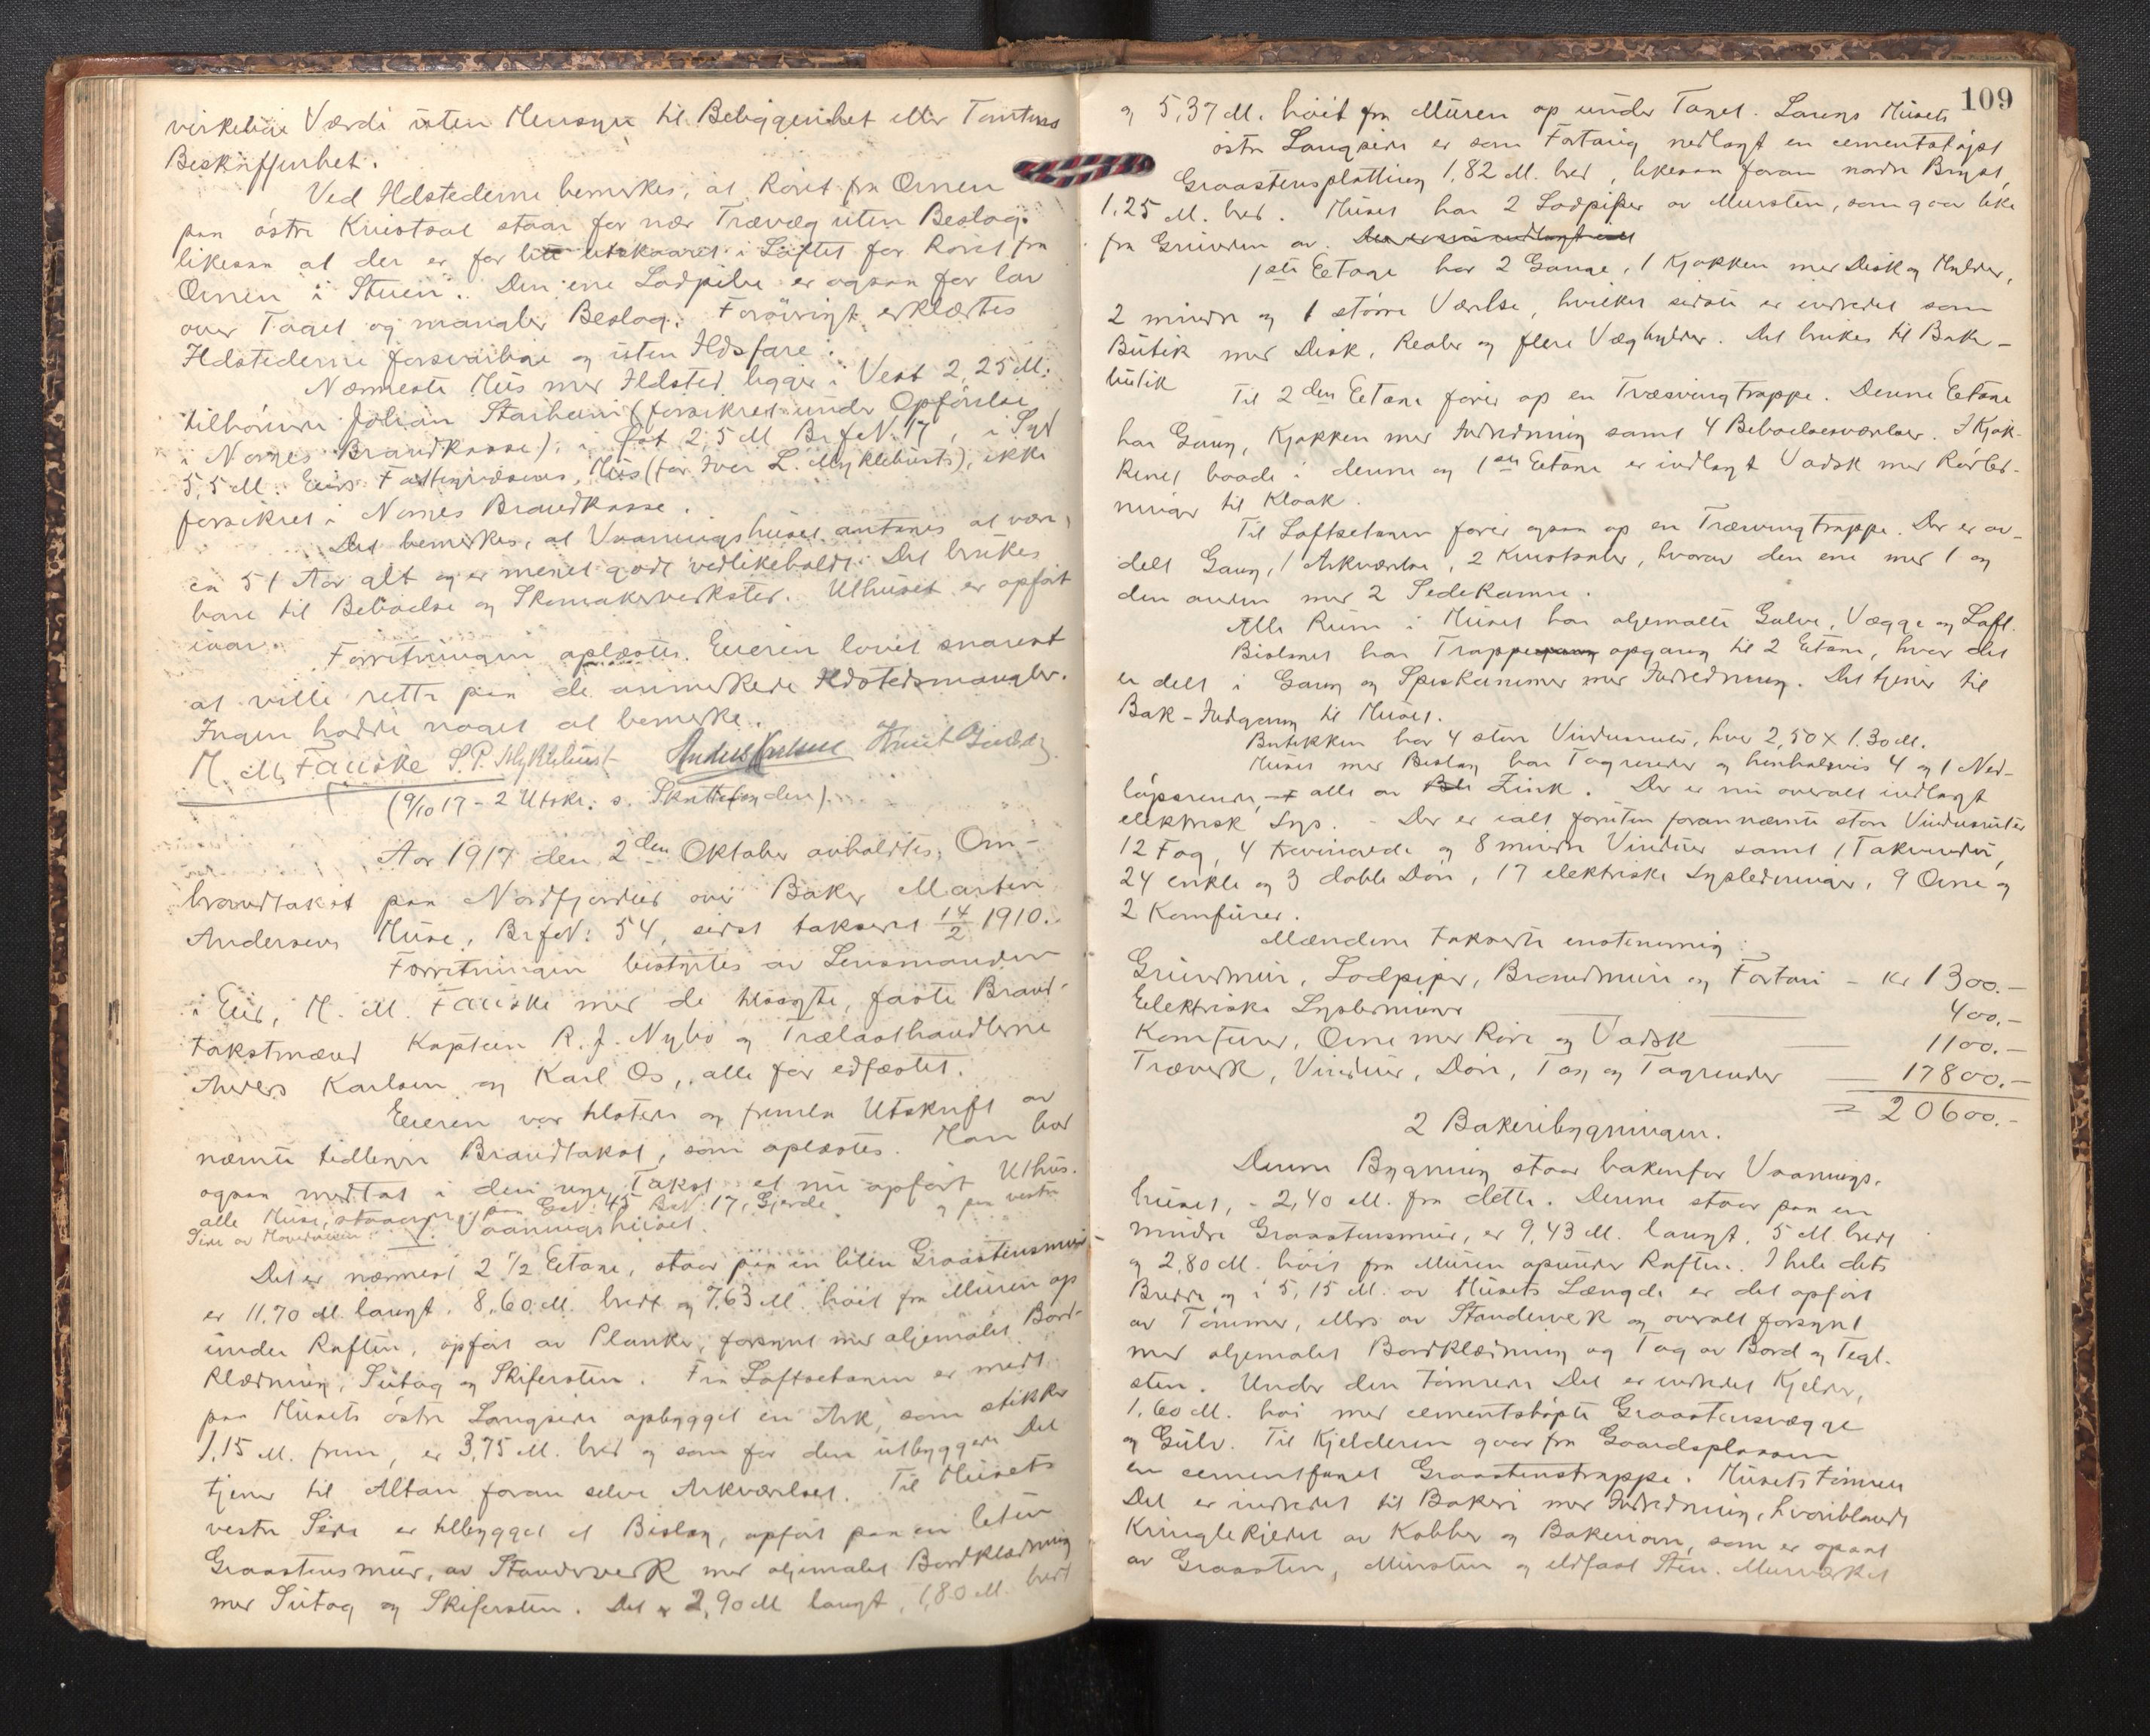 virkelige Værdi uten Hensyn til Beliggenhet eller Tomtens
Beskaffenhet.
Ved Ildstederne bemerkes, at Röret fra Ovnen
paa östre Kvistsal staar for nær Trævæg uten Beslag.
likesaa at der er for litt utskaaret i Loftet for Röret fra
Ovnen i Stuen. Den ene Lodpibe er ogsaa for lav
over Taget og mangler Beslag. Forövrigt erklærtes
Ildstederne forsvarlige og uten Ildsfare.
Nærmeste Hus med Ildsted ligger i Vest 2,25 M.
tilhörende Johan Starheim (forsikret under Opförelse
i Norges Brandkasse), i Öst 2,5 M Br.f.N. 17, i Syd
5,5 M. Eids Fattigvæsens Hus (för Iver L. Myklebusts), ikke
forsikret i Norges Brandkasse.
Det bemerkes, at Vaaningshuset antages at være
ca 51 Aar glt og er meget godt vedlikeholdt. Det brukes
bare til Beboelse og Skomakerverksted. Uthuset er opfört
iaar.
Forretningen oplæstes. Eieren lovet snarest
at ville rette paa de anmerkede Ildstedsmangler.
Ingen hadde noget at bemerke.
H. M. Fauske S. P. Myklebust Anders Karlsen Knut
(9/10 17 - 2 Utskr. s. Skattefogden).
Aar 1917 den 2den Oktober avholdtes Om-
brandtakst paa Nordfjordeid over Baker Martin
Andersens Huse, Br.f.N: 54, sidst taksert 14/2 1910.
Forretningen bestyrtes av Lensmanden
i Eid, H. M. Fauske med de tilsagte, faste Brand-
takstmænd Kaptein R. J. Nybö og Trælasthandlerne
Anders Karlsen og Karl Os, alle för edfæstet.
Eieren var tilstede og fremla Utskrift av
nævnte tidligere Brandtakst, som oplæstes. Man har
ogsaa medtat i den nye Takst et nu opfört Uthus.
alle Huse, staaende paa G.N. 45 B.N. 17, Gjerde og paa vestre
Side av Hovedveien. 1. Vaaningshuset.
Det er nærmest 2 1/2 Etage, staar paa en liten Graastensmur
er 11,70 M langt, 8,60 M. bredt og 7,63 M höit fra Muren op
under Raften, opfört av Planker, forsynt med oljemalet Bord-
klædning, Sutag og Skifersten. Fra Loftsetagen er midt
paa Husets östre Langside opbygget en Ark, som stikker
1,15 M. frem, er 3,75 M. bred og som för den utbyggede Del
tjener til Altan foran selve Arkværelset. Til Husets
vestre Side er tilbygget et Bislag, opfört paa en liten
Graastensmur, av Standerverk med oljemalet Bordklædning
med Sutag og Skifersten. Det er 2,90 M langt, 1,80 M. bredt
109
og 5,37 M. höit fra Muren op under Taget. Langs Husets
östre Langside er som Fortaug nedlagt en cementstöpt
Graastensplatting 1,82 M. bred, likesaa foran nordre Bryst,
1,25 M. bred. Huset har 2 Lodpiper av Mursten, som gaar like
fra Grunden av.
1ste Eetage har 2 Gange, 1 Kjökken med Disk og Hylder,
2 mindre og 1 större Værelse, hvilket sidste er indredet som
Butik med Disk, Reoler og flere Væghylder. Det brukes til Baker-
butik
Til 2den Eetage förer op en Træsvingtrappe. Denne Eetage
har Gang, Kjökken med Indredning samt 4 Beboelsesværelser. I Kjök-
kenet baade i denne og 1ste Eetage er indlagt Vadsk med Rörled-
ninger til Kloak.
Til Loftsetagen förer ogsaa op en Træsvingtrappe. Der er av-
delt Gang, 1 Arkværelse, 2 Kvistsaler, hvorav den ene med 1 og
den anden med 2 Sidekamre.
Alle Rum i Huset har oljemalte Gulve, Vægge og Loft.
Bislaget har Trappeopgang til 2 Etage, hvor det
er delt i Gang og Spiskammer med Indredning. Det tjener til
Bak-Indgang til Huset.
Butikken har 4 store Vindusruter, hver 2,50 x 1.30 M.
Huset med Bislag har Tagrender og henholdsvis 4 og 1 Ned-
löpsrender, alle av Zink. Der er nu overalt indlagt
elektrisk Lys. - Der er ialt foruten forannævnte store Vindusruter
12 Fag, 4 trevinduede og 8 mindre Vinduer samt 1 Takvindu,
24 enkle og 3 doble Döre, 17 elektriske Lysledninger, 9 Ovne og
2 Komfurer.
Mændene takserte enstemmig:
Grundmur, Lodpiper, Brandmure og Fortau - Kr 1300.-
Elektriske Lysledninger 400.-
Komfurer, Ovne med Röre og Vadsk 1100.-
Træverk, Vinduer, Döre, Tag og Tagrender 17800.-
= 20600.-
2 Bakeribygningen.
Denne Bygning staar bakenfor Vaanings-
huset, - 2,40 M. fra dette. Denne staar paa en
mindre Graastensmur, er 9,43 M. langt, 5 M bredt
og 2,80 M. höit fra Muren opunder Raften. I hele dets
Bredde og i 5,15 M. av Husets Længde er det opfört
av Tömmer, ellers av Standerverk og overalt forsynt
med oljemalet Bordklædning og Tag av Bord og Tegl-
sten. Under den tömrede Del er indredet Kjelder,
1,60 M. höi med cementstöpte Graastensvægge
og Gulv. Til Kjelderen gaar fra Gaardsplassen
en cementfuget Graastenstrappe. Husets tömrede
Del er indredet til Bakeri med Indredning, hvoriblandt
Kringlekjedel av Kobber og Bakeriovn, som er opsat
av Graasten, Mursten og ildfast Sten. Murværket